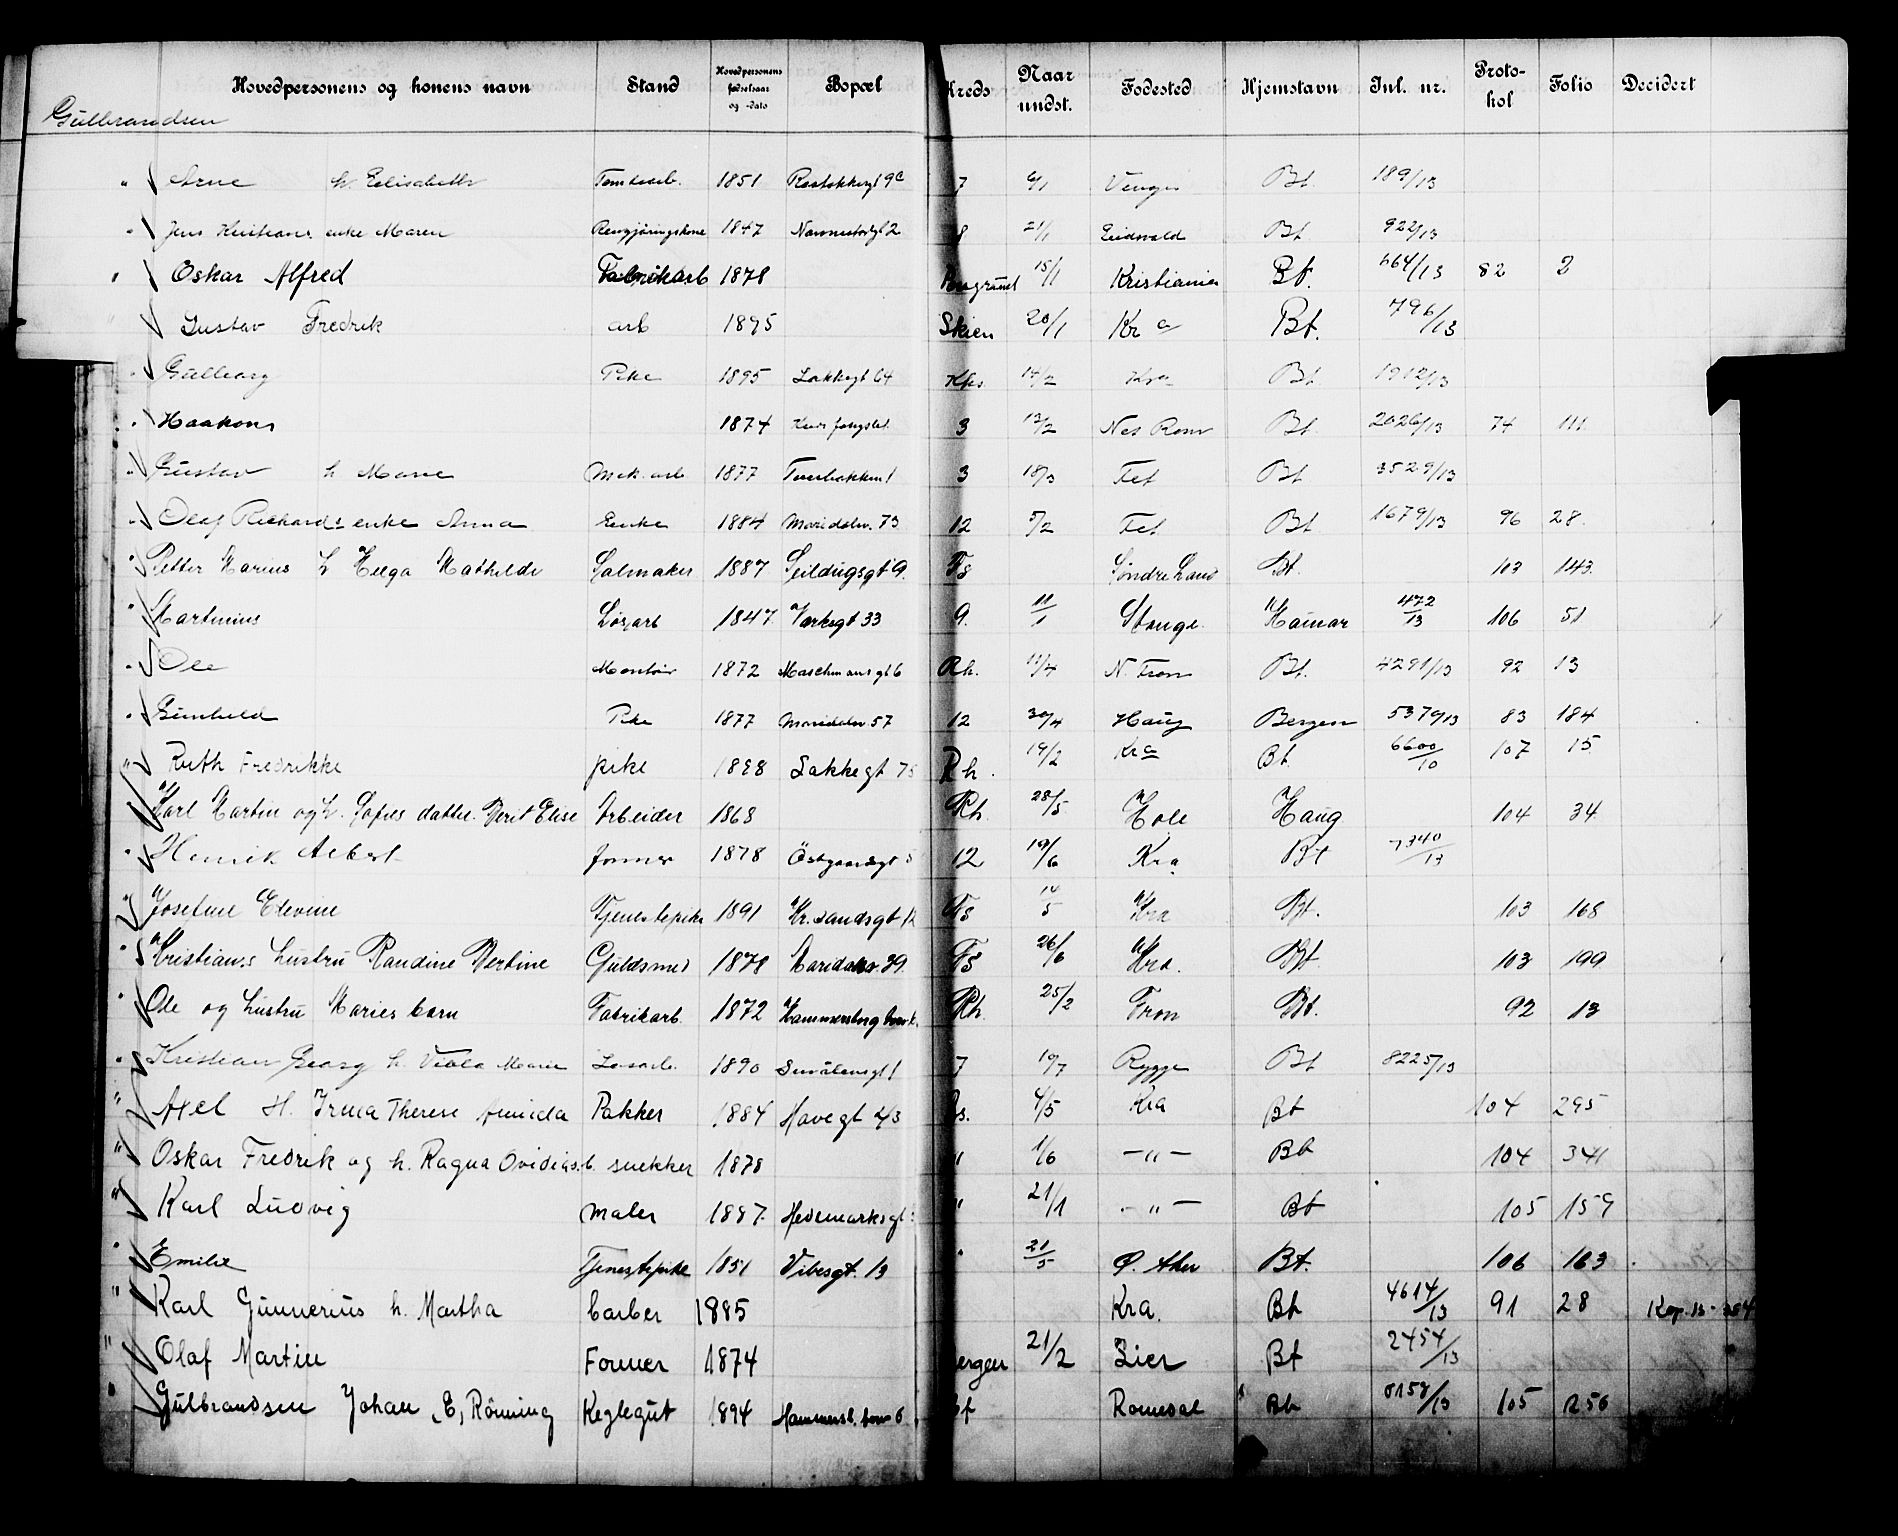 Hovedpersonens og konens navn Stand Hovedpersonens fødselsaar og -dato Bopæl Kreds Naar undst. Fødested Hjemstavn Inl. nr. Proto-kol Folio Decidert
Gulbrandsen
" Arne h. Elisabeth 1851 9c 7 6/1 Bt. 189/13
" Jens Kristians enke Maren Rengjøringskone 1847 8 21/1 Eidsvold Bt 922/13
" Oskar Alfred Fabrikarb 1878 15/1 Kristiania Bt. 82 2
" Gustav Fredrik arb 1895 Skien 20/1 Kra Bt. 796/13
" Gulborg Pike 1895 Lakkegt 64 14/2 Kra Bt 1912/13
" Haakon 1874 3 13/2 Nes Rom Bt. 2026/13 74 111.
" Gustav h Marie Mek. arb 1877 3 18/3 Fet Bt 3529/13
" Olaf Richards enke Anna Enke 1884 Maridalsv. 73 12 5/2 Fet Bt 1679/13 96 28.
" Petter Marius h Helga Mathilde Salmaker 1887 Seildugsgt 9. Fs Søndre Land Bt. 103 143.
" Martinius Løsarb 1847. 33 9. 11/1 Stange. Hamar 472/13 106 51
" Ole Montør 1872 Maschmansgt 6 Rh. 11/4 N. Fron Bt. 4291/13 92 13
" Gunhild Pike 1877 Maridalsv 57 12 30/4 Haug Bergen 5379/13 83 184
" Ruth Fredrikke pike 1898 Lakkegt 75 Rh. 19/2 Kra Bt. 6600/10 107 15
" Karl Martin og h. Sofies datter Berit Elise Arbeider 1868 Rh. 28/5. Hole Haug 104 34
" Henrik Albert former 1878 Østgaardsgt 5 12 19/6 Kra Bt 7340/13
" Josefine Edevine Tjenestepike 1891 Kr.sandsgt 12 Fs 14/5 Kra Bt. 103 168
" Kristians hustru Randine Bertine Guldsmed 1878 Maridalsv. 39. Fs 26/6 Kra. Bt. 103 199
" Ole og hustru Maries barn Fabrikarb. 1872 Hammersborg Rh. 25/2 Fron Bt. 92 13
" Kristian Georg h. Viola Marie Løsarb. 1890 7 19/7 Rygge Bt 8225/13
" Axel H. Irma Therese Aminda Pakker 1884 Havegt 2/3 4/5 Kra Bt 104 295
" Oskar Fredrik og h. Ragna Ovidia snekker 1878 " 1/6 —"— Bt 104 341
" Karl Ludvig maler 1887. Hedemarksgt " 21/1 —"— Bt 105 159
" Emilie Tjenestepike 1851 Vibesgt. 13 " 21/5 Ø. Aker Bt. 106 163.
" Karl Gunnerius h. Martha barber 1885 Kra. Bt 4614/13 91 28
" Olaf Martin Former 1874 ergen 21/2 Lier Bt 2454/13
" Gulbrandsen Johan E, Rönning Keglegut 1894 Romsdal Bt 8158/13 105 256